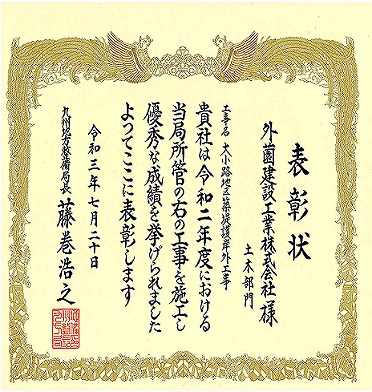 表彰状
外薗建設工業株式会社 様
土木部門
工事名 大小路地区築堤護岸外工事
貴社は令和二年度における
当局所管の右の工事を施工し
優秀な成績を挙げられました
よってここに表彰します
令和三年七月二十日
九州地方整備局長 藤巻浩之